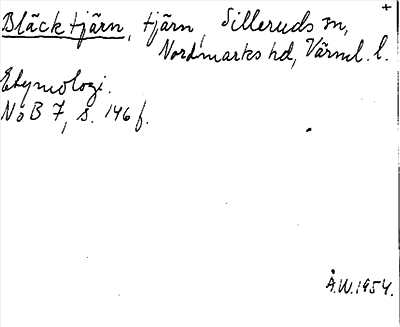 +
Bläcktjärn, tjärn, Silleruds sn,
Nordmarks hd, Värml. l.
Etymologi.
NoB 7, s. 146 f.
Å.W. 1954.